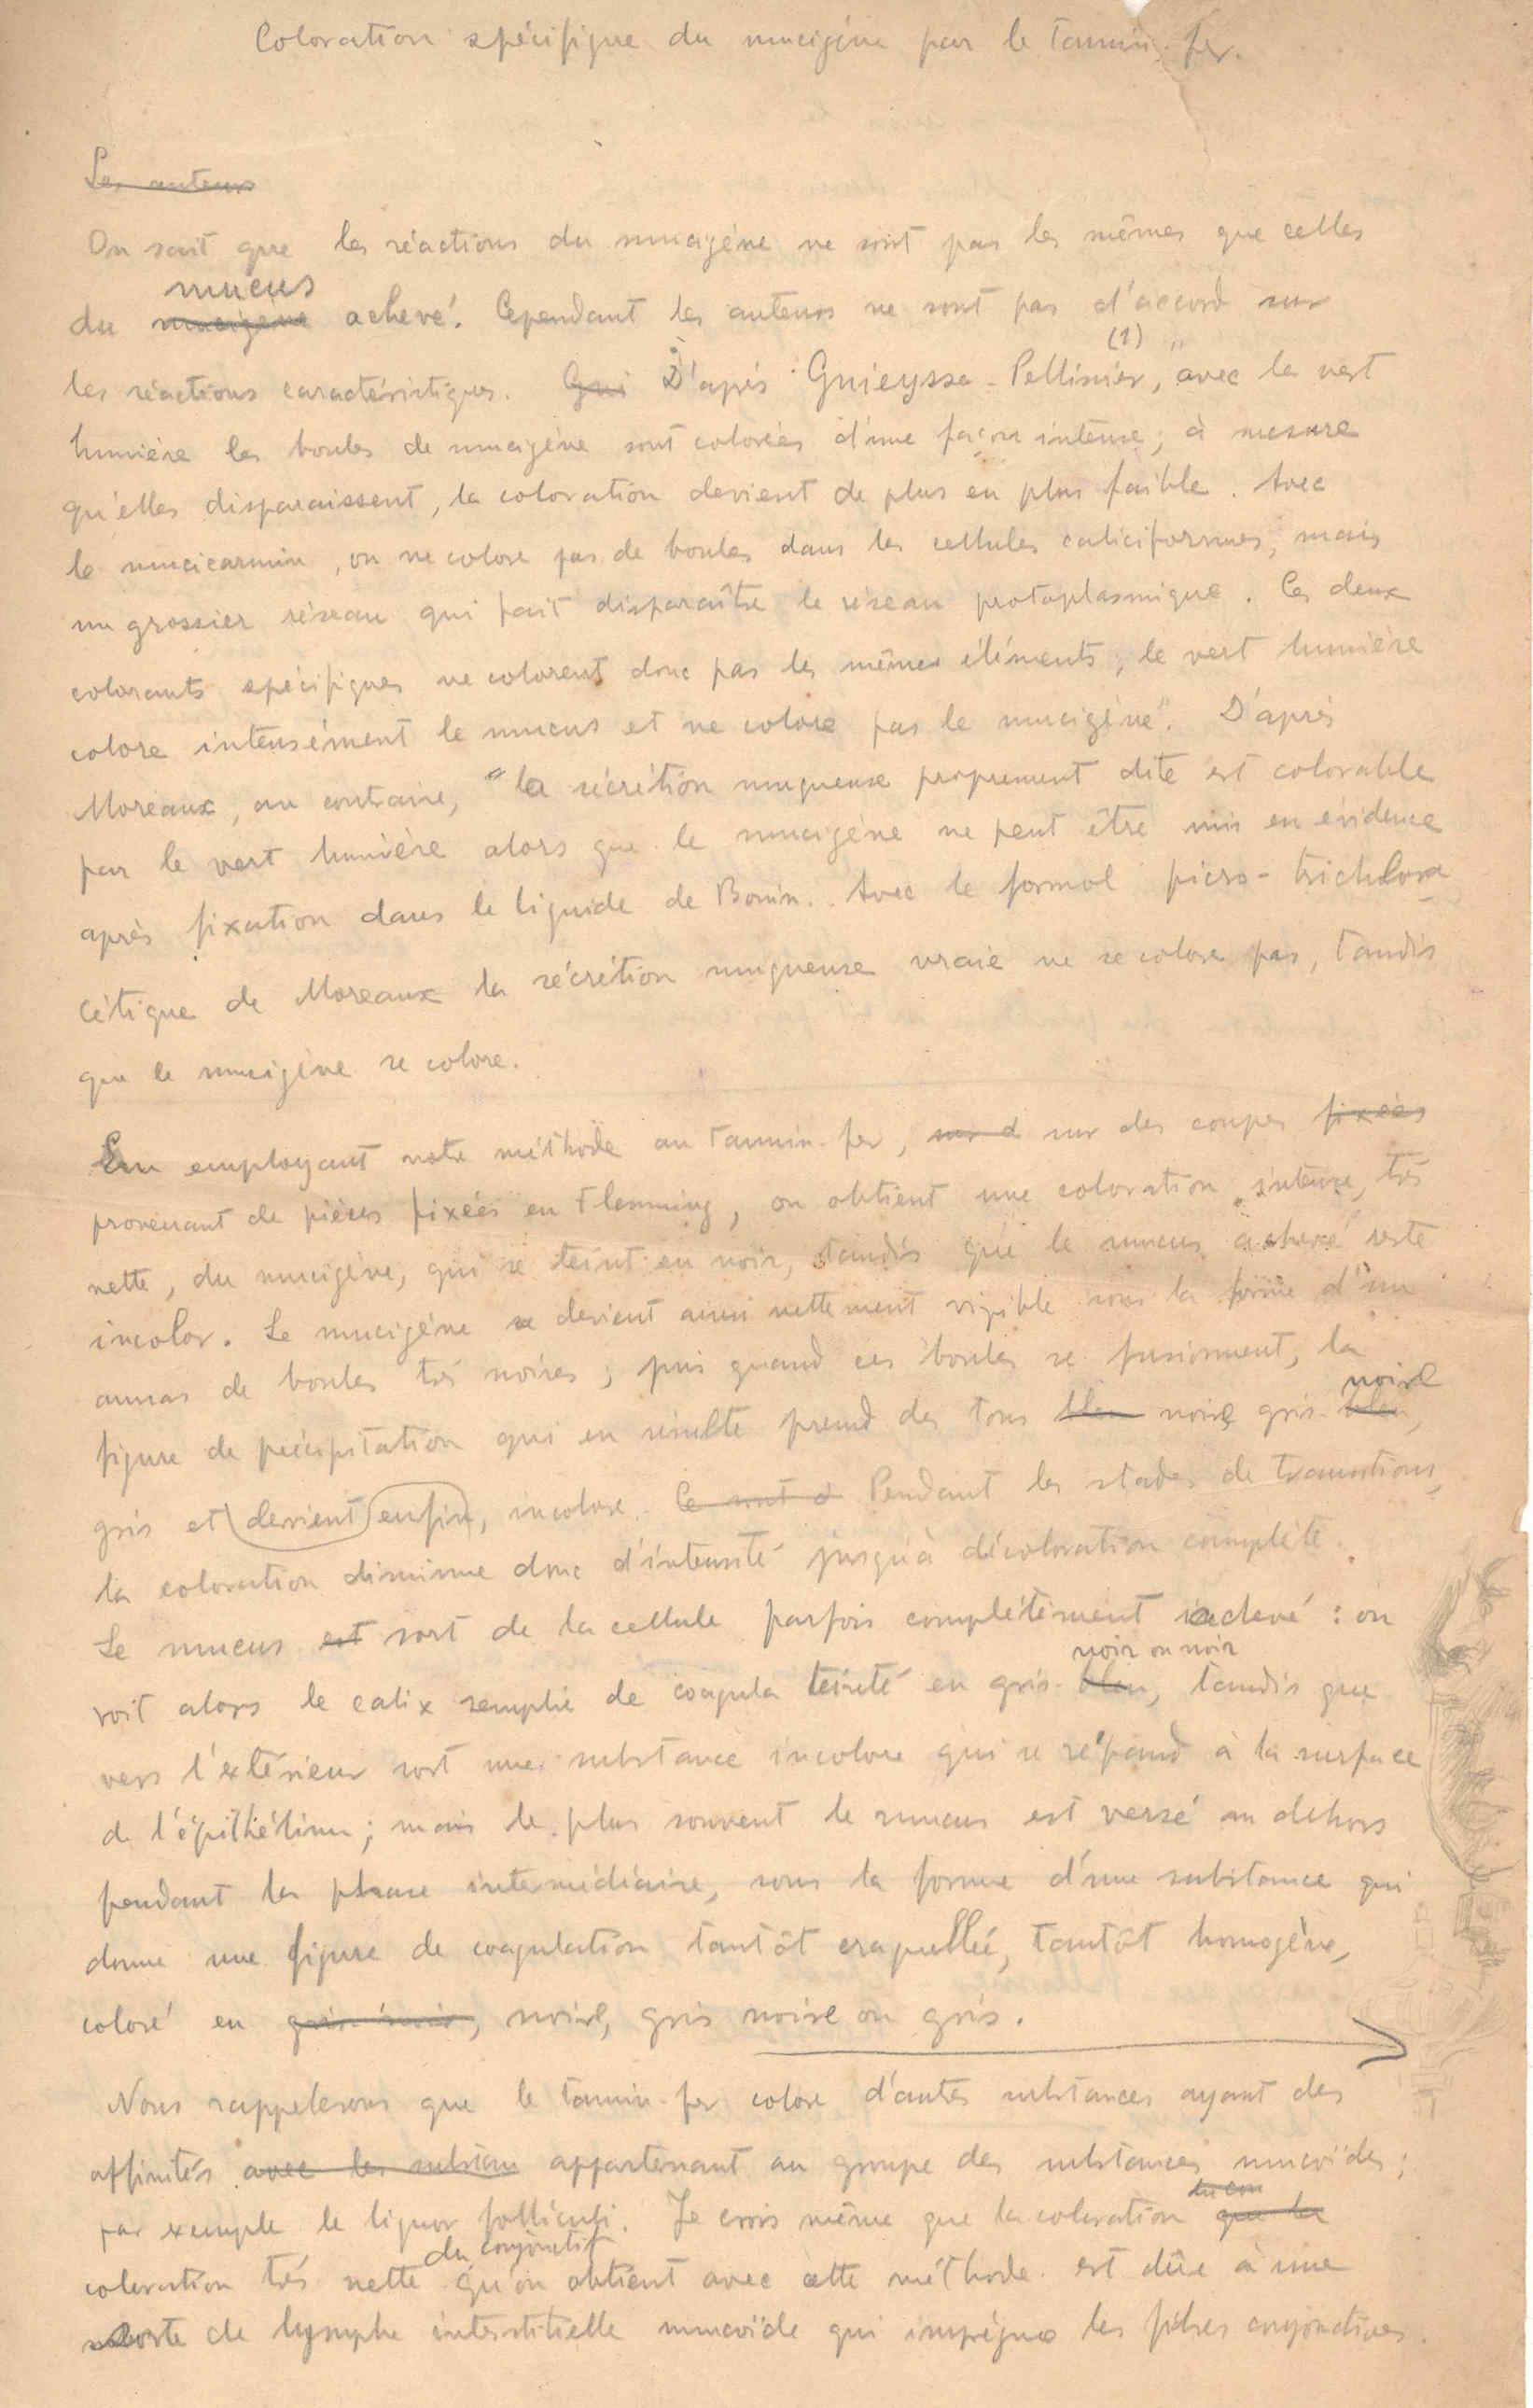 Coloration spécifique du mucigène par le tannin-fer.
Les auteurs
On sait que les réactions du mucigène ne sont pas les mêmes que celles
mucus
du mucigène achevé. Cependant les auteurs ne sont pas d'accord sur
(1)
les réactions caractéristiques. Gui D'après Guieysse-Pellisier, "avec le vert
lumière les boules de mucigène sont colorées d'une façon intense; à mesure
qu'elles disparaissent, la coloration devient de plus en plus faible. Avec
le mucicarmin, on ne colore pas de boules dans les cellules caliciformes, mais
un grossier réseau qui fait disparaître le réseau protoplasmique. Ces deux
colorants spécifiques ne colorent donc pas les mêmes éléments; le vert lumière
colore intensément le mucus et ne colore pas le mucigène". D'après
Moreaux, au contraire, "la sécrétion muqueuse proprement dite est colorable
par le vert lumière alors que le mucigène ne peut être mis en évidence
après fixation dans le liquide de Bouin. Avec le formol picro-trichlora-
cétique de Moreaux la sécrétion muqueuse vraie ne se colore pas, tandis
que le mucigène se colore.
En employant notre méthode au tannin-fer, sur d sur des coupes fixées
provenant de pièces fixées en Flemming, on obtient une coloration intense, très
nette, du mucigène, qui se teint en noir, tandis que le mucus achevé reste
incolor. Le mucigène se devient ainsi nettement visible sous la forme d'un
amas de boules très noires; puis quand ces boules se fusionnent, la
noire
figure de précipitation qui en résulte prend des tons bleu noire gris-bleu,
gris et devient enfin, incolore. Ce sont d Pendant les stades de transitions,
la coloration diminue donc d'intensité jusqu'à décoloration complète.
Le mucus est sort de la cellule parfois complètement achevé: on
noir ou noir
voit alors le calix remplie de coagula teinté en gris-bleu, tandis que
vers l'extérieur sort une substance incolore qui se répand à la surface
de l'épithélium; mais le plus souvent le mucus est versé au dehors
pendant la phase intermédiaire, sous la forme d'une substance qui
donne une figure de coagulation tantôt craquellée, tantôt homogène,
coloré en gris noir, noire, gris noire ou gris.
Nous rappelerons que le tannin-fer colore d'autes substances ayant des
affinités avec les substan appartenant au groupe des substances mucoïdes;
par exemple le liquor folliculi. Je crois même que la coloration que la
du conjonctif
coloration très nette qu'on obtient avec cette méthode est dûe à une
sorte de lymphe interstitielle mucoïde qui imprégne les fibres conjonctives.